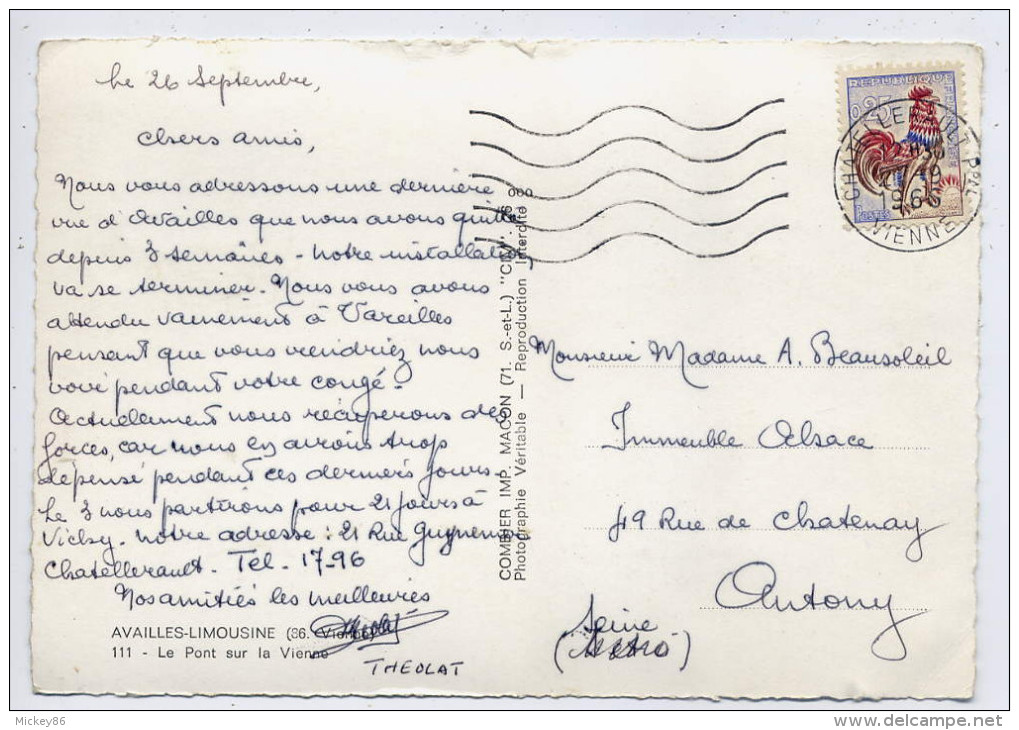 Le 26 Septembre,
Chers amis,
Nous vous adressons une dernière
vue d'Availles que nous avons quitté
depuis 3 semaines - notre installation
va se terminer. Nous vous avons
attendu vainement à Vareilles
pensant que vous viendriez nous
voir pendant votre congé -
Actuellement nous récupérons des
forces, car nous en avons trop
dépensé pendant ces derniers jours.
Le 3 nous partirons pour 21 jours à
Vichy. notre adresse : 21 Rue
Chatellerault - Tél - 17-96
Nos amitiés les meilleures
THEOLAT
AVAILLES-LIMOUSINE (86. Vienne)
111 - Le Pont sur la Vienne
COMBIER IMP. MACON (71. S.-et-L.) "CIM"
Photographie Véritable — Reproduction Interdite
0,25
CHATELLERAULT PPAL
VIENNE
Monsieur Madame A. Beausoleil
Immeuble Alsace
49 Rue de Chatenay
Antony
Seine
Mickey86